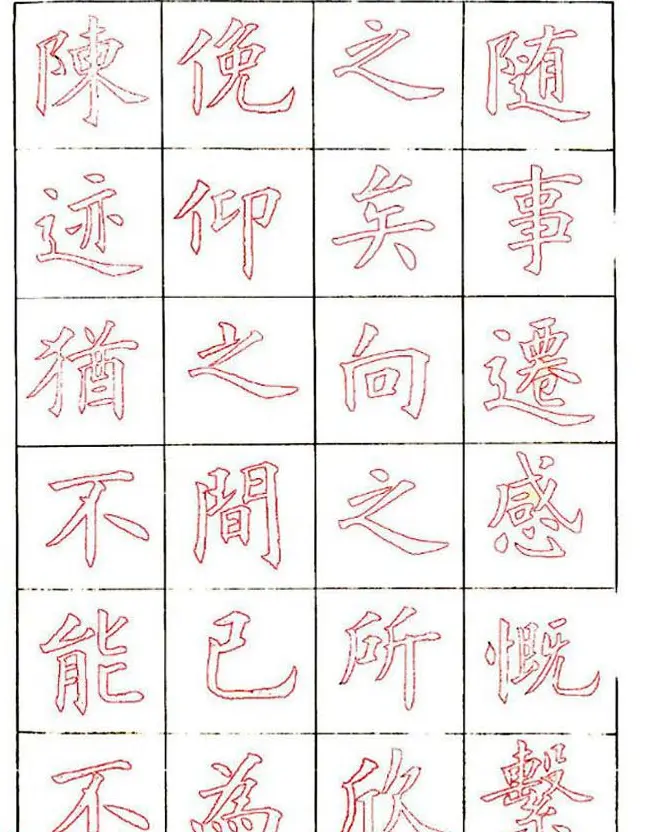 随事遷感慨繫
之矣向之所欣
俛仰之間已為
陳迹猶不能不